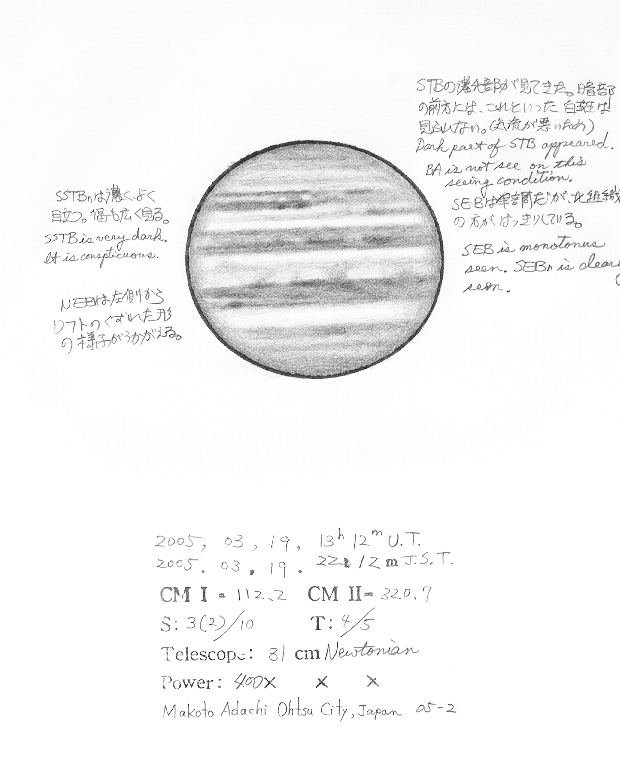 STBの濃化部が見てきた。暗部
の前方には、これといった白斑は
見られない。(気流が悪いため)
Dark part of STB appeared.
BA is not see on this
seeing condition.
SEBは単調だが、北組織
の方がはっきりしている。
SEB is monotonus
seen. SEBn is clear
seen.
SSTBnは濃く、よく
目立つ。幅も広く見る。
SSTB is very dark.
It is conspicuous.
NEBは左側から
リフトのくずれた形
の様子がうかがえる。
2005, 03, 19, 13h 12m U.T.
2005. 03. 19. 22h 12m J.S.T.
CM I = 112.2 CM II = 320.7
S: 3(2)/10 T: 4/5
Telescope: 31 cm Newtonian
Power: 400× × ×
Makoto Adachi Ohtsu City, Japan 05-2